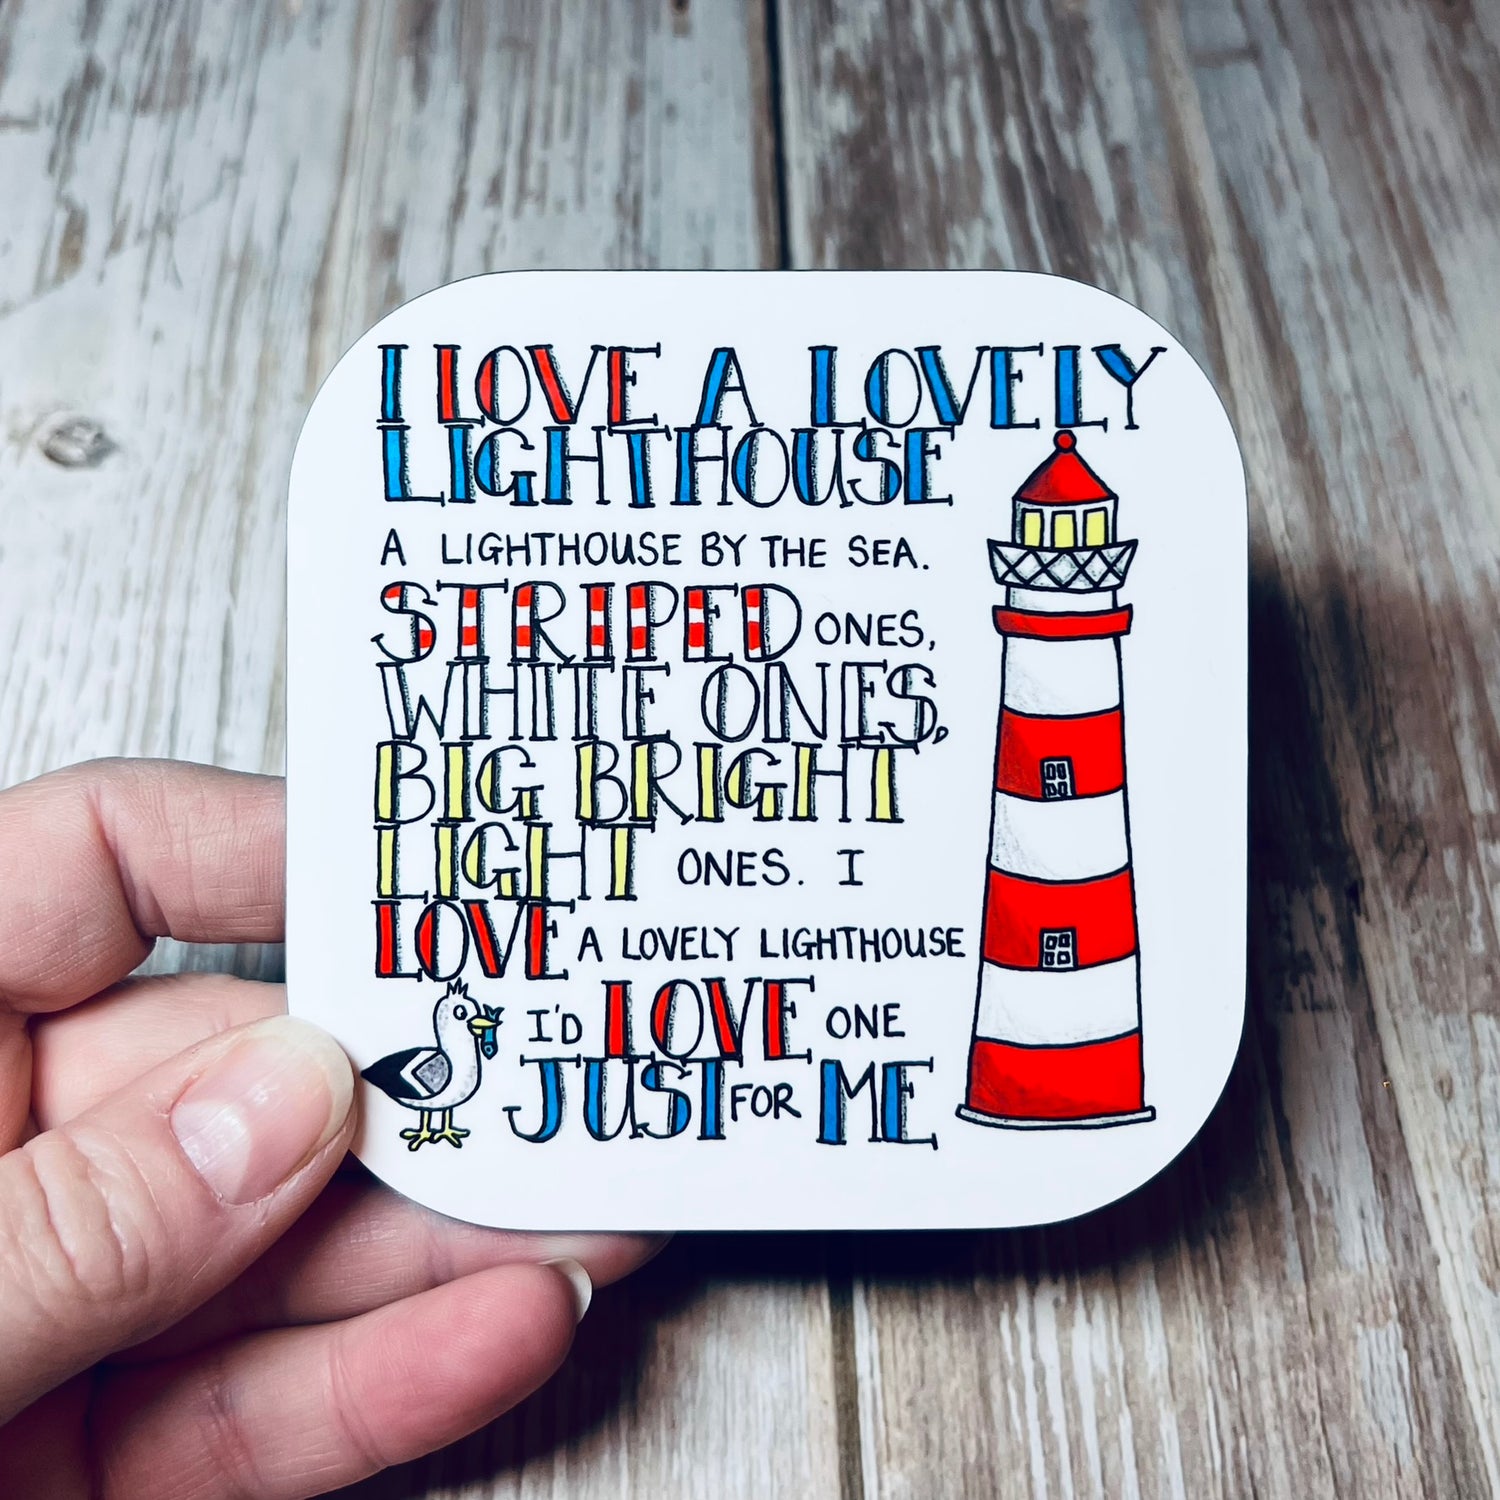 I LOVE A LOVELY
LIGHTHOUSE
A LIGHTHOUSE BY THE SEA.
STRIPED ONES,
WHITE ONES,
BIG BRIGHT
LIGHT ONES. I
LOVE A LOVELY LIGHTHOUSE
I'D LOVE ONE
JUST FOR ME